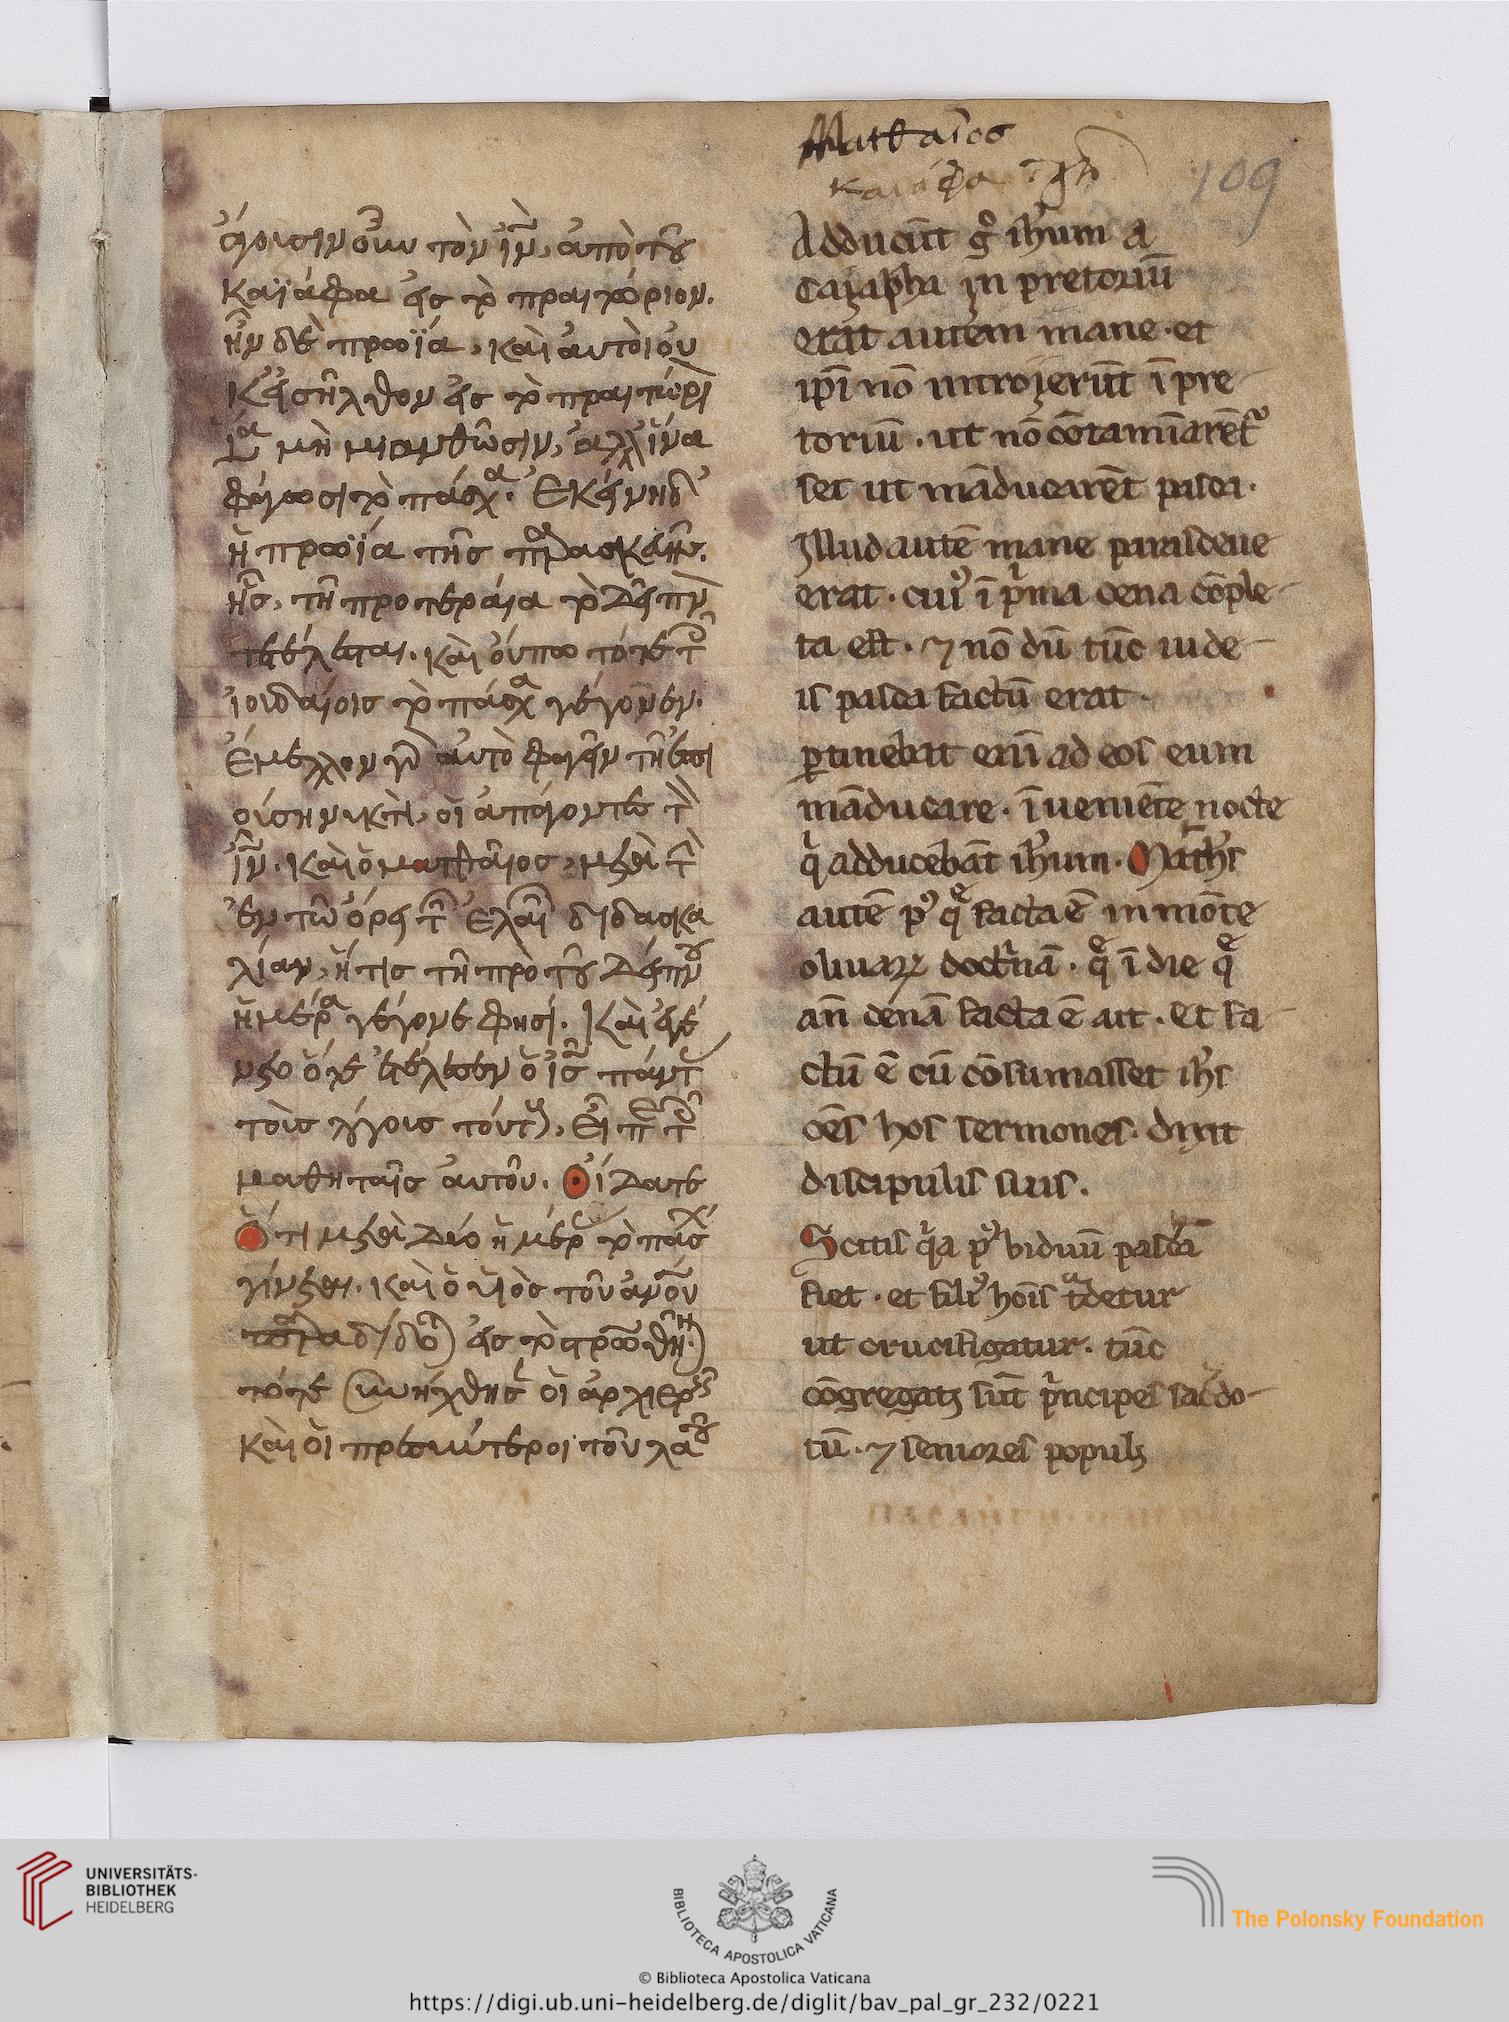 Ματθαῖος
καιάφα
109
ἄγουσιν οὖν τὸν ἰν̅, ἀπὸ τοῦ
Καϊάφα εἰς τὸ πραιτώριον.
ἦν δὲ πρωΐα, καὶ αὐτοὶ οὐ
κ εἰσῆλθον εἰς τὸ πραιτώρι
ἵνα μὴ μιανθῶσιν, ἀλλ' ἵνα
φάγωσι τὸ πάσχα. Ἐκείνη δ'
ἡ πρωΐα τῆς παρασκευῆς
ἧς, τῇ προτεραία τὸ δεῖπν
τετέλεσται. καὶ οὔπω τότε τ
ἰουδαίοις τὸ πάσχα γέγονεν.
Ἔμελλον γὰρ αὐτὸ φαγεῖν τῇ ἐπι
ούσῃ νυκτὶ, οἱ ἀπάγοντες τ
ἰν̅. καὶ ὁ ματθαῖος, μετὰ τ
ἐν τῶ ὄρει τ ἐλαι διδασκα
λίαν, ἥτις τῇ πρὸ τοῦ δείπνου
ἡμέρα γέγονε φησί. Καὶ ἐγέ
νετο ὅτε ἐτέλεσεν ὁ ις̅ πάντ
τοὺς λόγους τούτους, εἶπε τ
μαθηταῖς αὐτοῦ. Οἴδατε
Ὅτι μετὰ δύο ἡμέρ τὸ πάσχ
γίνεται. καὶ ὁ υἱὸς τοῦ ἀν̅ου
παραδίδο εἰς τὸ στρωθῆν
τότε συνήχθησ οἱ ἀρχιερ
καὶ οἱ πρεσβύτεροι τοῦ λαοῦ
Adducūt g° ih̅um a
Cayapha in pretoriū
erat autem mane. et
ip̄i nō introierūt ī pre
toriū. ut nō cōtamīarēt
set ut māducarēt pasca.
Illud autē mane parasceue
erat. cui⁹ ī p'ma cena cōple
ta est. ⁊ nō dū tūc iude
is pasca factū erat.
ꝑtinebat enī ad eos eum
māducare. ī ueniēte nocte
q̄ adducebāt ih̅um. Math̅s
autē p⁹ q̄ facta ē in mōte
oliuaꝝ doct'nā. q̄ ī die q̄
an̄ cenā facta ē ait. Et fa
ctū ē cū cōsumasset ih̅s
oēs hos sermones. dixit
discipulis suis.
Scitis q'a p⁹ biduū pasca
fiet. et fili⁹ hoīs t̃detur
ut crucifigatur. tūc
cōgregati sūt p'ncipes sac̄do
tū. ⁊ seniores populi
UNIVERSITÄTS-
BIBLIOTHEK
HEIDELBERG
BIBLIOTECA APOSTOLICA VATICANA
The Polonsky Foundation
© Biblioteca Apostolica Vaticana
https://digi.ub.uni-heidelberg.de/diglit/bav_pal_gr_232/0221